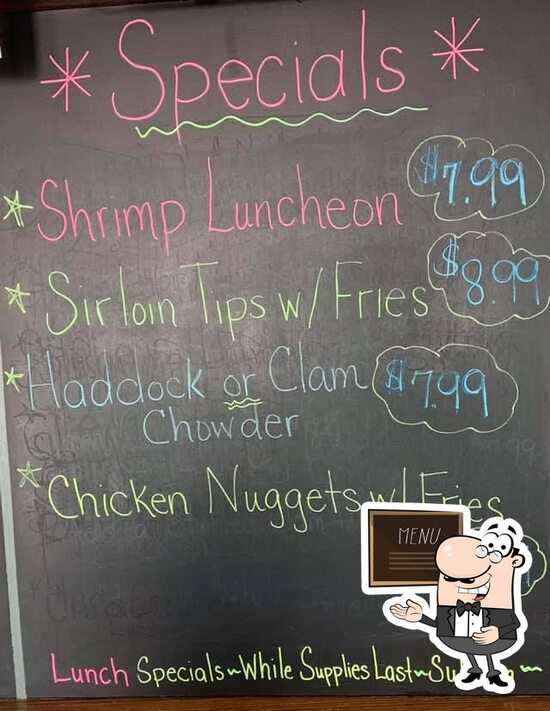 * Specials *
* Shrimp Luncheon $7.99
* Sirloin Tips w/ Fries $8.99
* Haddock or Clam $7.99
Chowder
* Chicken Nuggets w/ Fries
MENU
Lunch Specials~While Supplies Last~